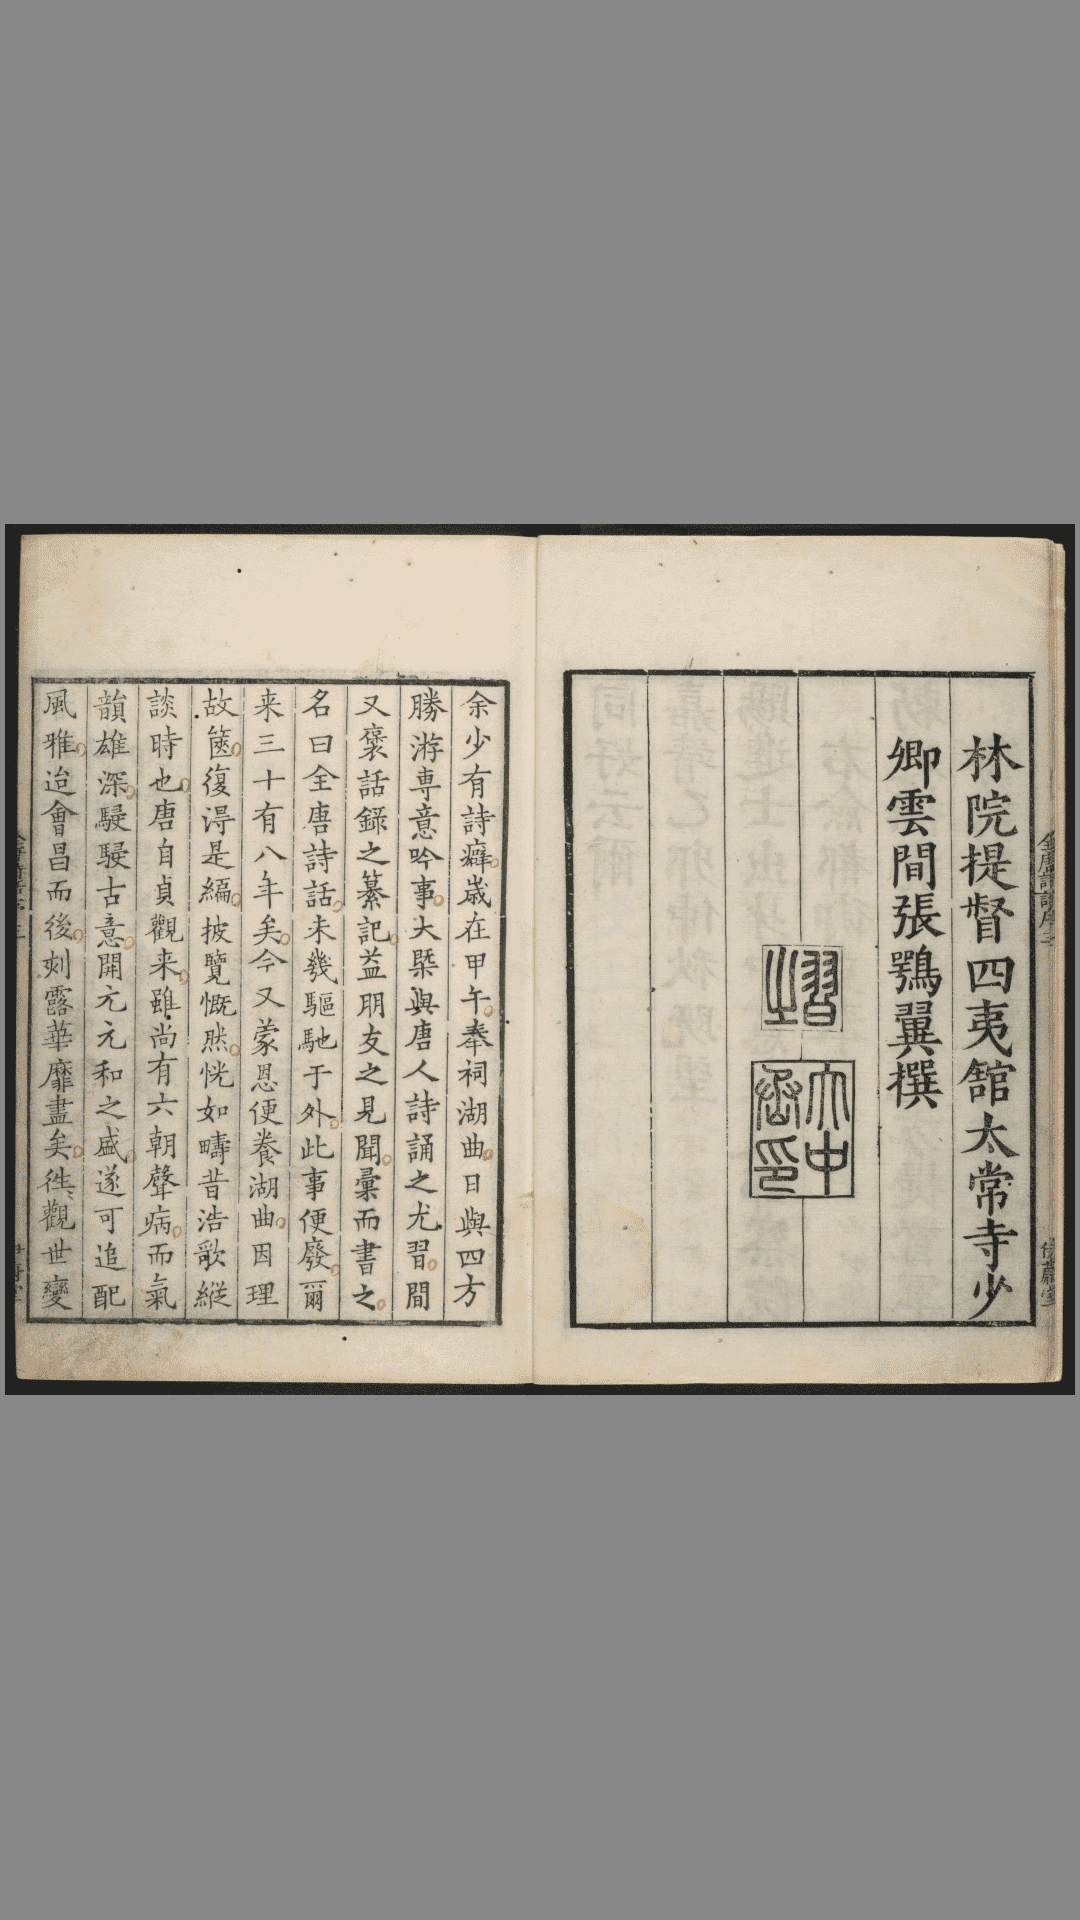 林院提督四夷舘太常寺少
卿雲間張鶚翼撰
余少有詩癖歳在甲午奉祠湖曲日與四方
勝游專意吟事大槩與唐人詩誦之尤習間
又褒話錄之纂記益朋友之見聞彙而書之
名曰全唐詩話未幾驅馳于外此事便廢爾
来三十有八年矣今又蒙恩便養湖曲因理
故篋復得是編披覽慨然恍如疇昔浩歌縱
談時也唐自貞觀来雖尚有六朝聲病而氣
韻雄深駸駸古意開元元和之盛遂可追配
風雅迨會昌而後刻露華靡盡矣徃徃觀世變